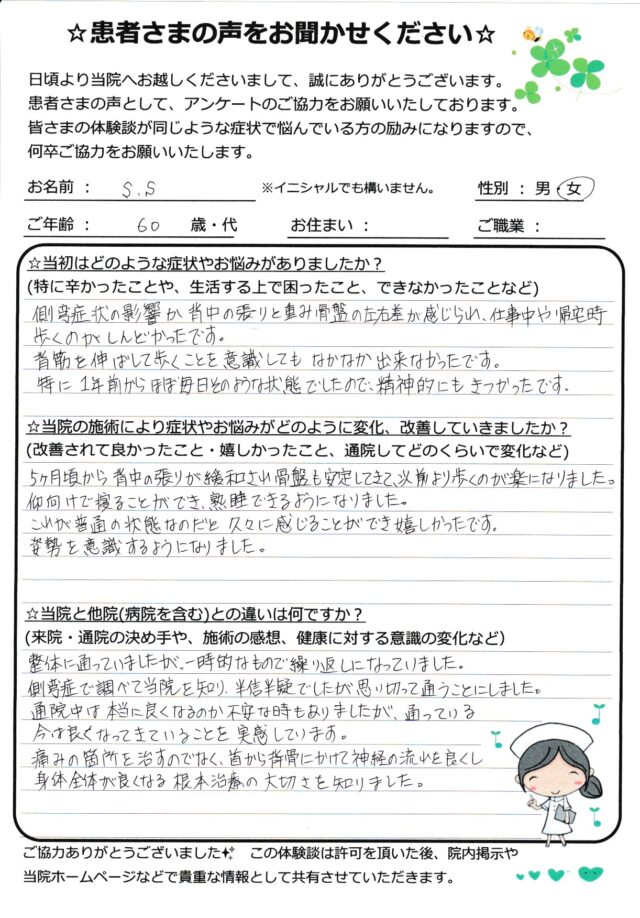 ☆患者さまの声をお聞かせください☆
日頃より当院へお越しくださいまして、誠にありがとうございます。
患者さまの声として、アンケートのご協力をお願いいたしております。
皆さまの体験談が同じような症状で悩んでいる方の励みになりますので、
何卒ご協力をお願いいたします。
お名前 : S.S ※イニシャルでも構いません。 性別 : 男・女
ご年齢 : 60 歳・代 お住まい : ご職業 :
☆当初はどのような症状やお悩みがありましたか？
(特に辛かったことや、生活する上で困ったこと、できなかったことなど)
側弯症状の影響か背中の張りと重み骨盤の左右差が感じられ、仕事中や帰宅時
歩くのがしんどかったです。
背筋を伸ばして歩くことを意識してもなかなか出来なかったです。
特に1年前からほぼ毎日そのような状態でしたので、精神的にもきつかったです。
☆当院の施術により症状やお悩みがどのように変化、改善していきましたか？
(改善されて良かったこと・嬉しかったこと、通院してどのくらいで変化など)
5ヶ月頃から背中の張りが緩和され骨盤も安定してきて、以前より歩くのが楽になりました。
仰向けで寝ることができ、熟睡できるようになりました。
これが普通の状態なのだと久々に感じることができ嬉しかったです。
姿勢を意識するようになりました。
☆当院と他院(病院を含む)との違いは何ですか？
(来院・通院の決め手や、施術の感想、健康に対する意識の変化など)
整体に通っていましたが、一時的なもので繰り返しになっていました。
側弯症で調べて当院を知り、半信半疑でしたが思い切って通うことにしました。
通院中は本当に良くなるのか不安な時もありましたが、通っている
今は良くなってきていることを実感しています。
痛みの箇所を治すのでなく、首から背骨にかけて神経の流れを良くし
身体全体が良くなる根本治療の大切さを知りました。
ご協力ありがとうございました この体験談は許可を頂いた後、院内掲示や
当院ホームページなどで貴重な情報として共有させていただきます。